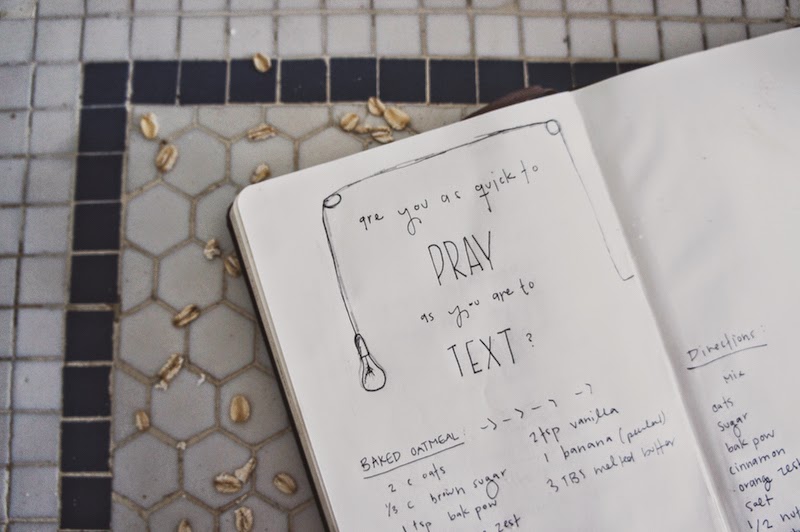 are you as quick to
PRAY
as you are to
TEXT?
BAKED OATMEAL: -> -> -> ->
2 c oats
1/3 c brown sugar
1 tsp bak pow
zest
2 tsp vanilla
1 banana (peeled)
3 TBS melted butter
Directions:
Mix
oats
sugar
bak pow
cinnamon
orange zest
salt
1/2 nut